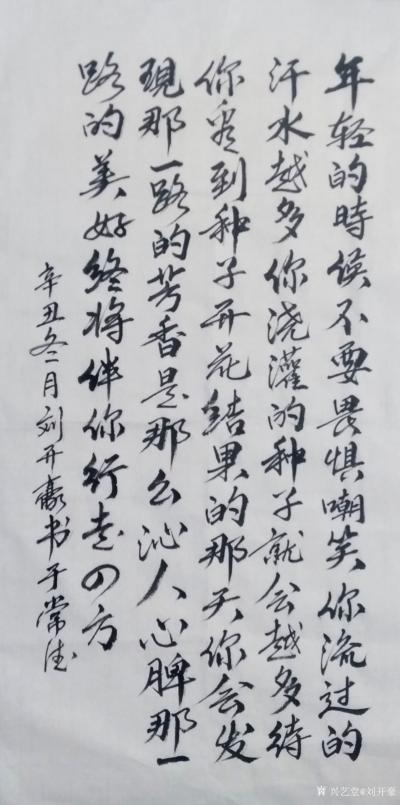 年轻的時候不要畏惧嘲笑你流过的
汗水越多你浇灌的种子就会越多待
你看到种子开花结果的那天你会发
現那一路的芳香是那么沁人心脾那一
路的美好终将伴你行走四方
辛丑冬月刘开豪书于常德
兴艺堂@刘开豪